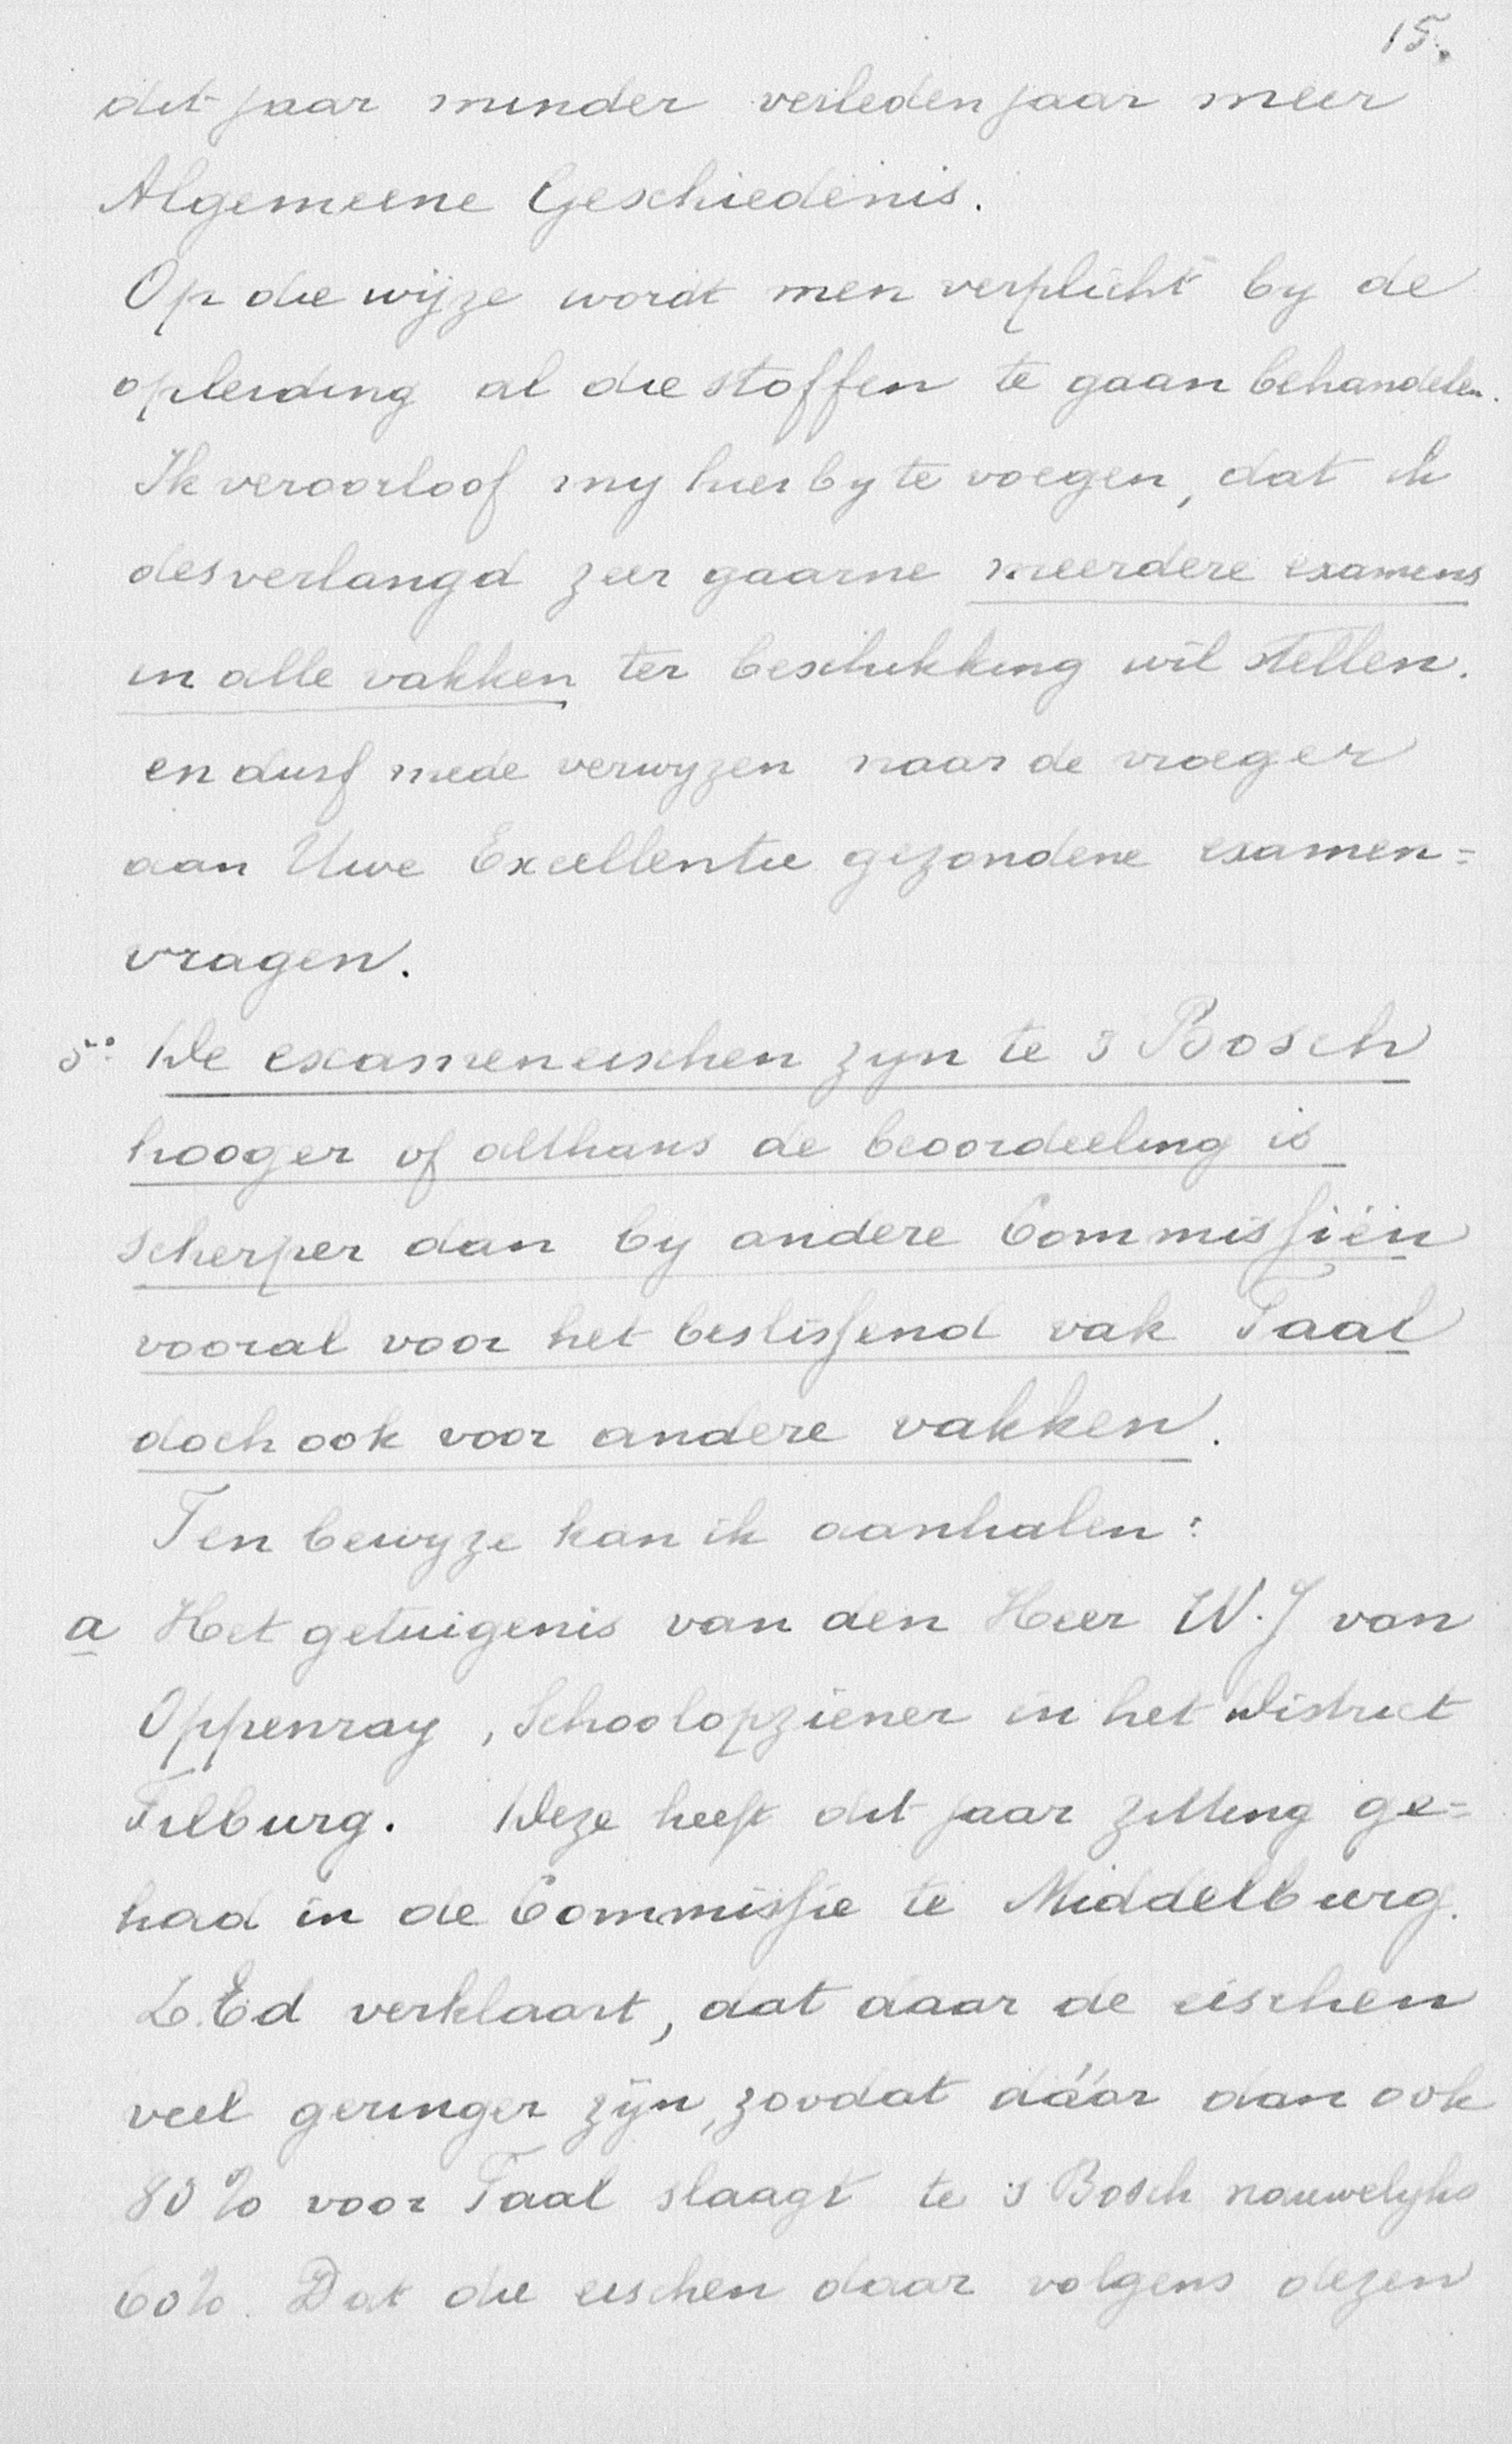 15.
dit jaar minder verleden jaar meer
Algemeene Geschiedenis.
Op die wijze wordt men verplicht by de
opleiding al die stoffen te gaan behandelen.
Ik veroorloof my hierby te voegen, dat ik
desverlangd zeer gaarne meerdere examens
in alle vakken ter beschikking wil stellen.
en durf mede verwyzen naar de vroeger
aan Uwe Excellentie gezondene examen=
vragen.
5o: De exameneischen zyn te s Bosch
hooger of althans de beoordeeling is
scherper dan by andere Commissiën
vooral voor het beslissend vak Taal
doch ook voor andere vakken.
Ten bewyze kan ik aanhalen:
a Het getuigenis van den Heer W. J van
Oppenray, Schoolopziener in het District
Tilburg. Deze heeft dit jaar zitting ge=
had in de Commissie te Middelburg.
Z.Ed verklaart, dat daar de eischen
veel geringer zijn, zoodat dáár dan ook
80% voor Taal slaagt te s Bosch nauwelyks
60%. Dat die eischen daar volgens dezen